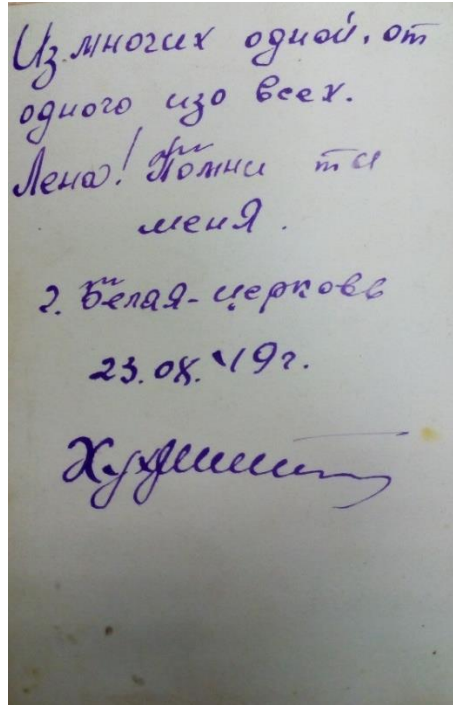 Из многих одной, от
одного изо всех.
Лена! Помни ты
меня.
г. Белая-церковь
23.IX.49г.